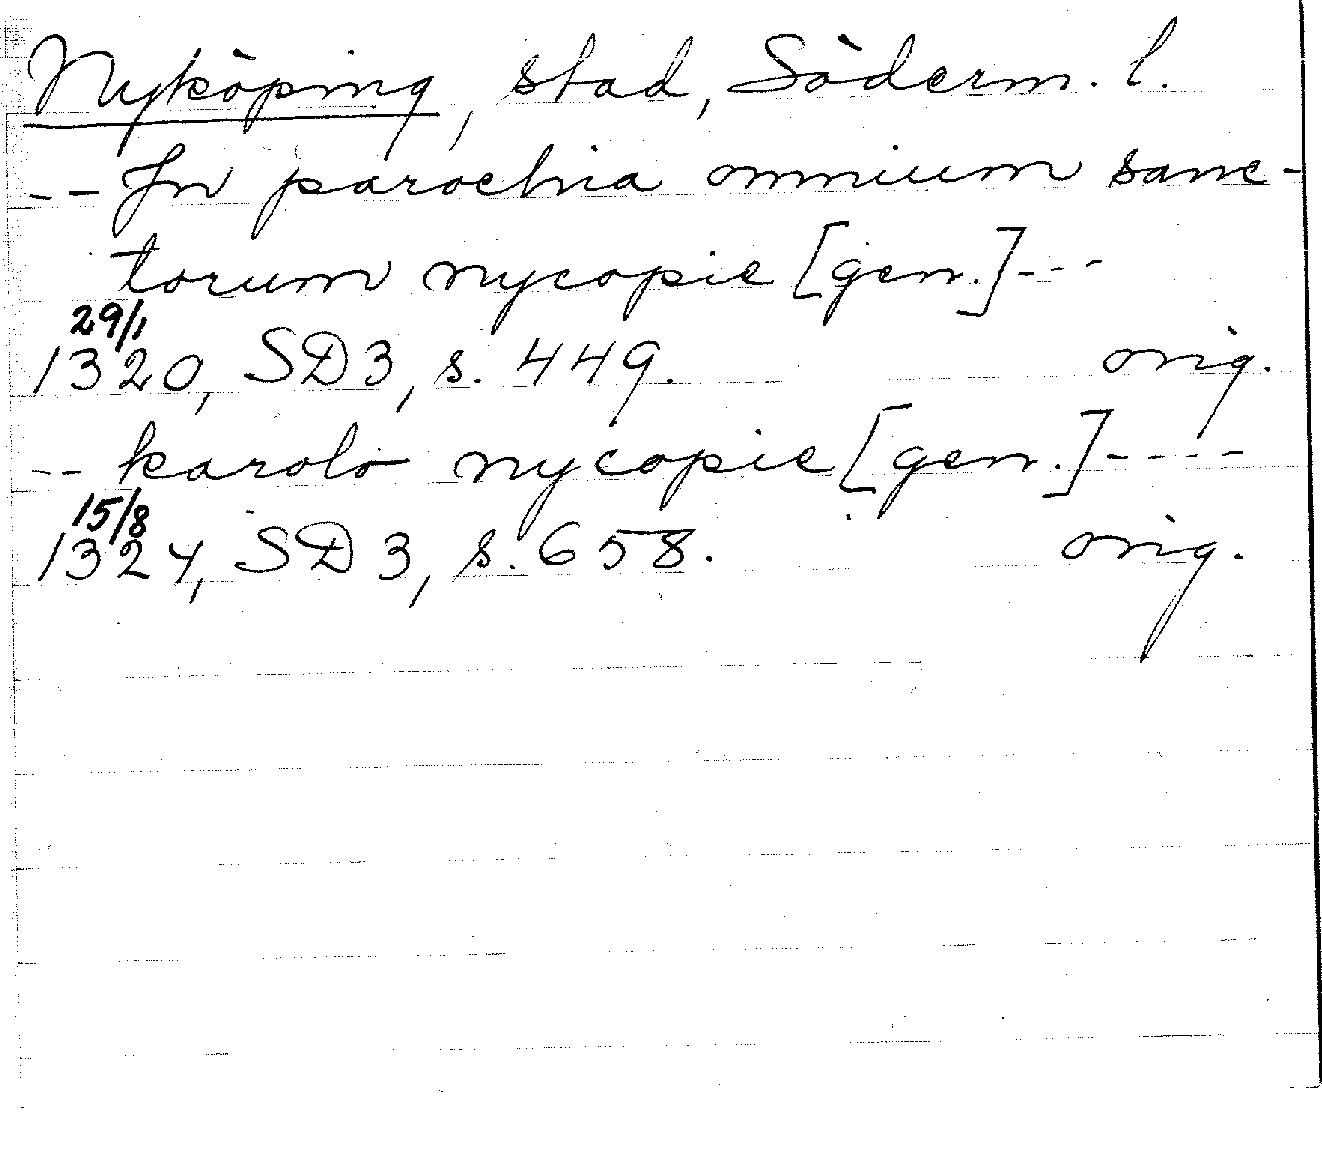 Nyköping, stad, Söderm. l.
-- In parochia omnium sanc-
torum nycopie [gen.]---
29/1
1320, SD3, s. 449. orig.
-- karolo nycopie [gen.]----
15/8
1324, SD3, s. 658. orig.